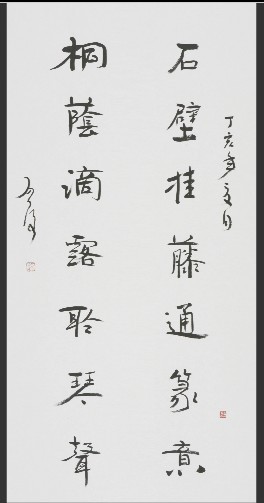 丁亥年之月
石壁挂藤通篆意
桐蔭滴露聆琴聲